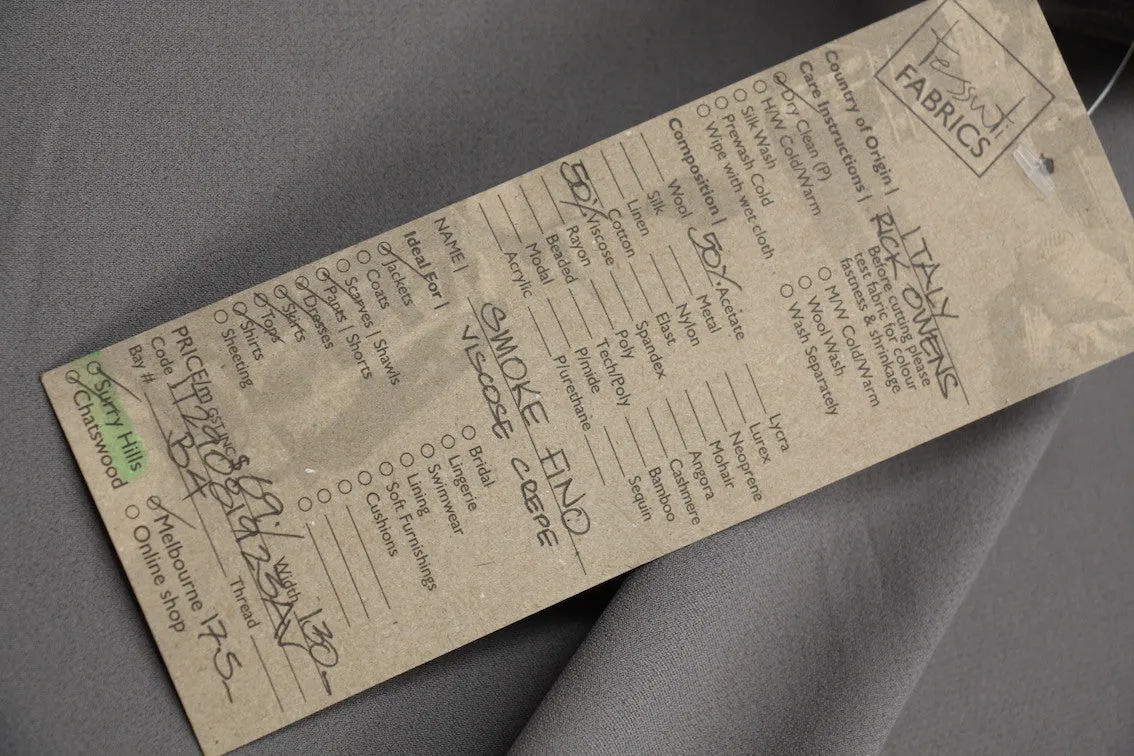 tessuti
FABRICS
Country of Origin | ITALY
RICK OWENS
Care Instructions | Before cutting please
test fabric for colour
fastness & shrinkage
Dry Clean (P)
H/W Cold/Warm
Silk Wash
Prewash Cold
Wipe with wet cloth
M/W Cold/Warm
Wool Wash
Wash Separately
Composition |
Wool
Silk
Linen
Cotton
50% Viscose
Rayon
Beaded
Modal
Acrylic
50% Acetate
Metal
Nylon
Elast
Spandex
Poly
Tech/Poly
P/mide
P/urethane
Lycra
Lurex
Neoprene
Mohair
Angora
Cashmere
Bamboo
Sequin
NAME | SMOKE FINO
VISCOSE CREPE
Ideal For |
Jackets
Coats
Scarves | Shawls
Pants | Shorts
Dresses
Skirts
Tops
Shirts
Sheeting
Bridal
Lingerie
Swimwear
Lining
Soft Furnishings
Cushions
PRICE/m GST INC $69./ Width 130
Code Thread
Bay # B04
Surry Hills
Chatswood
Melbourne 17.5
Online shop